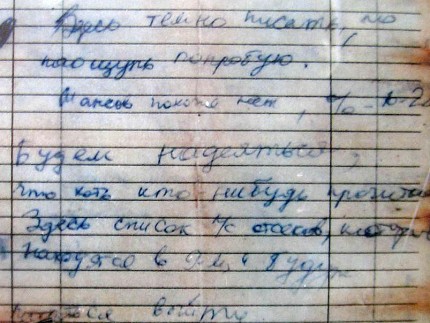 Здесь темно писать, но
наощупь попробую.
Шансов похоже нет, % - 10-20
Будем надеяться,
что хоть кто нибудь прочитает
Здесь список л/с отсеков, которые
находятся в 9-м, и будут
пытаться выйти.